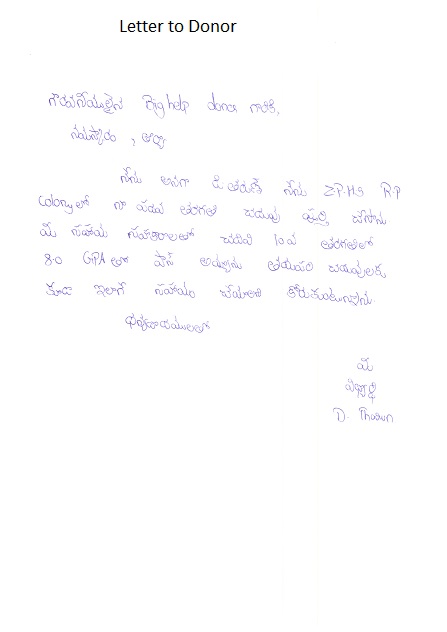 Letter to Donor
గౌరవనీయులైన Big help donor గారికి,
నమస్కారం, అయ్యా
నేను అనగా డి తరుణ్ నేను Z.P.H.S R.P
Colony లో నా పదవ తరగతి చదువు పూర్తి చేసాను
మీ సహాయ సహకారాలతో చదివి 10వ తరగతిలో
8.0 GPA తో పాస్ అయ్యాను తదుపరి చదువులకు
కూడా ఇలాగే సహాయం చేయాలని కోరుకుంటున్నాను.
ధన్యవాదములతో
మీ
విద్యార్థి
D. Tharun